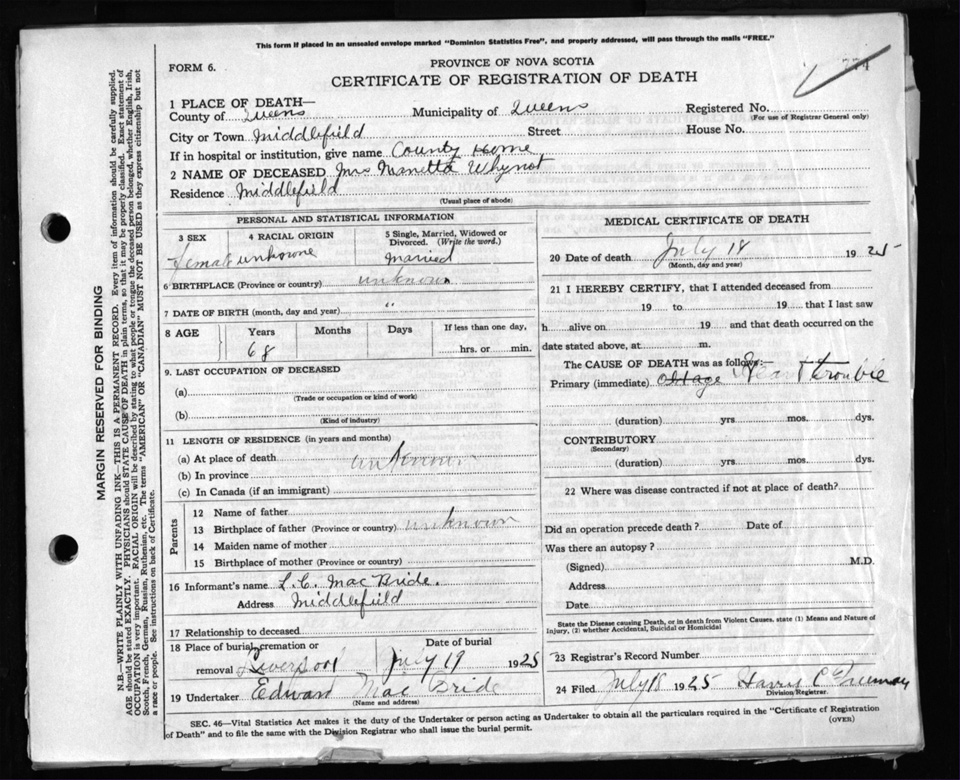 This form if placed in an unsealed envelope marked "Dominion Statistics Free", and properly addressed, will pass through the mails "FREE."
FORM 6.
PROVINCE OF NOVA SCOTIA
774
CERTIFICATE OF REGISTRATION OF DEATH
1 PLACE OF DEATH—
County of Queens Municipality of Queens Registered No.
(For use of Registrar General only)
City or Town Middlefield Street House No.
If in hospital or institution, give name County Home
2 NAME OF DECEASED Mrs Manetta Whynot
Residence Middlefield
(Usual place of abode)
PERSONAL AND STATISTICAL INFORMATION
3 SEX 4 RACIAL ORIGIN 5 Single, Married, Widowed or Divorced. (Write the word.)
Female unknowne Married
6 BIRTHPLACE (Province or country) unknown
7 DATE OF BIRTH (month, day and year) "
8 AGE Years Months Days If less than one day,
68 hrs. or min.
9. LAST OCCUPATION OF DECEASED
(a)
(Trade or occupation or kind of work)
(b)
(Kind of industry)
11 LENGTH OF RESIDENCE (in years and months)
(a) At place of death unknown
(b) In province
(c) In Canada (if an immigrant)
Parents
12 Name of father
13 Birthplace of father (Province or country) unknown
14 Maiden name of mother
15 Birthplace of mother (Province or country)
16 Informant's name L. C. MacBride.
Address Middlefield
17 Relationship to deceased
18 Place of burial, cremation or Date of burial
removal Liverpool July 19 1925
19 Undertaker Edward MacBride
(Name and address)
MEDICAL CERTIFICATE OF DEATH
20 Date of death July 18 1925
(Month, day and year)
21 I HEREBY CERTIFY, that I attended deceased from
19 to 19 that I last saw
h alive on 19 and that death occurred on the
date stated above, at m.
The CAUSE OF DEATH was as follows:—
Primary (immediate) Old age Heart trouble
(duration) yrs. mos. dys.
CONTRIBUTORY
(Secondary)
(duration) yrs. mos. dys.
22 Where was disease contracted if not at place of death?
Did an operation precede death? Date of
Was there an autopsy?
(Signed) M.D.
Address
Date
State the Disease causing Death, or in death from Violent Causes, state (1) Means and Nature of
Injury, (2) whether Accidental, Suicidal or Homicidal
23 Registrar's Record Number
24 Filed July 18 1925 Harry C Freeman
Division Registrar.
SEC. 46—Vital Statistics Act makes it the duty of the Undertaker or person acting as Undertaker to obtain all the particulars required in the "Certificate of Registration
of Death" and to file the same with the Division Registrar who shall issue the burial permit.
(OVER)
MARGIN RESERVED FOR BINDING
N.B.—WRITE PLAINLY WITH UNFADING INK—THIS IS A PERMANENT RECORD. Every item of information should be carefully supplied.
AGE should be stated EXACTLY. PHYSICIANS should STATE CAUSE OF DEATH in plain terms, so that it may be properly classified. Exact statement of
OCCUPATION is very important. RACIAL ORIGIN will be described by stating to what people or tongue the deceased person belonged, whether English, Irish,
Scotch, French, German, Russian, Ruthenian, etc. The terms "AMERICAN" OR "CANADIAN" MUST NOT BE USED as they express citizenship but not
a race or people. See instructions on back of Certificate.